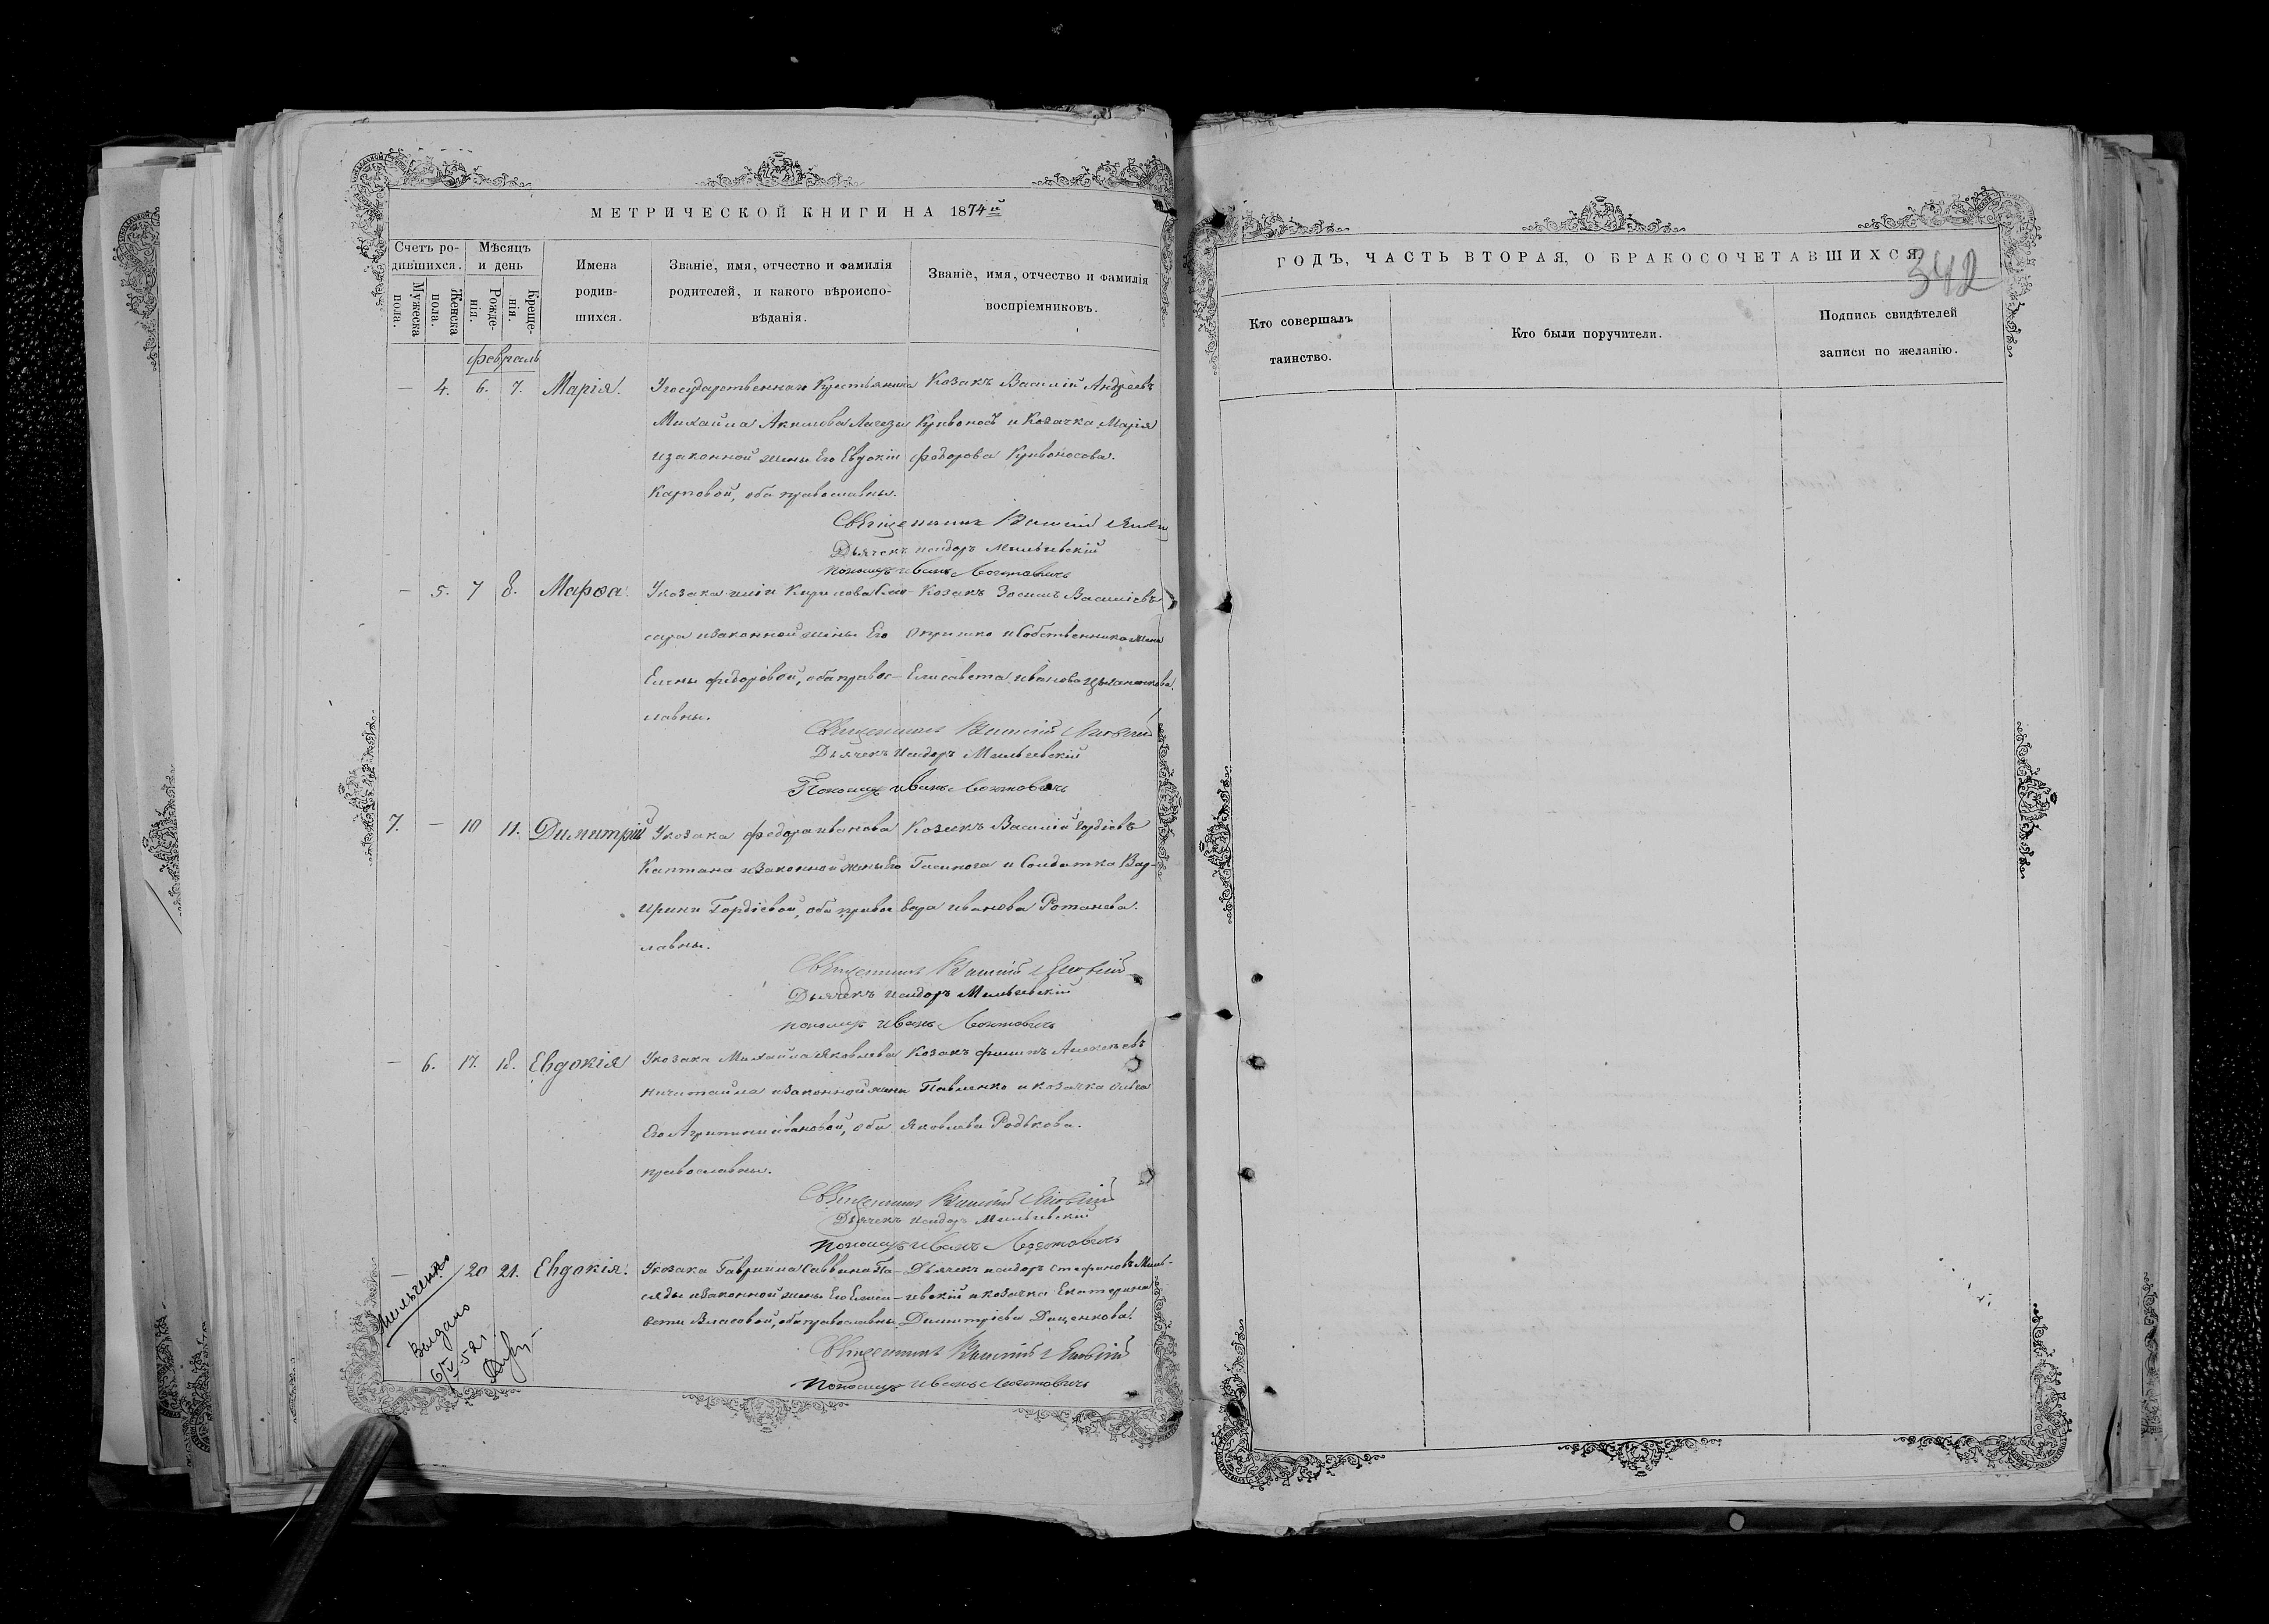 МЕТРИЧЕСКОЙ КНИГИ НА 1874й
Счетъ ро-
дившихся.
Мѣсяцъ
и день
Мужеска
пола.
Женска
пола.
Рожде-
нія.
Креще-
нія.
Имена
родив-
шихся.
Званіе, имя, отчество и фамилія
родителей, и какого вѣроиспо-
вѣданія.
Званіе, имя, отчество и фамилія
воспріемниковъ.
февраль
— 4. 6. 7. Марія.
У государственнаго Крестьянина
Михаила Акимова
и законной жены Его Евдокіи
Карповой, оба православны.
Козакъ Василій Андреевъ
Кривоносъ и Козачка Марія
федорова Кривоносова.
Священникъ Василій
Дьячекъ Исидоръ Мильчевскій
пономарь Иванъ
— 5. 7 8. Марѳа.
У козака Кирилова
и законной жены Его
Елены федоровой, оба правос-
лавны.
Козакъ Зосимъ Василіевъ
Опришко и Собственника жена
Елисавета Иванова
Священникъ Василій
Дьячекъ Исидоръ Мильчевскій
Пономарь Иванъ
7. — 10 11. Димитрій
У козака федора иванова
Каптана и законной жены Его
Ирины Гордіевой, оба право
лавны.
Козакъ Василій Гордіевъ
и Солдатка Вар-
вара иванова Ротанева.
Священникъ Василій
Дьячекъ Исидоръ Мильчевскій
пономарь Иванъ
— 6. 17. 18. Евдокія
У козака Михаила Яковлева
Ничитайла и законной жены
Его Агрипины ивановой, оба
православны.
Козакъ филипъ Алексѣевъ
Павленко и козачка
Яковлева Родькова.
Священникъ Василій
Дьячекъ Исидоръ Мильчевскій
Пономарь Иванъ
— 20 21. Евдокія.
У козака Гавріила Саввина Па-
ляды и законной жены Его Елиса-
веты Власовой, оба православны
Дьячекъ исидоръ Стефановъ Миль-
чевскій и козачка Екатерина
Димитріева Диценкова.
Священникъ Василій
Пономарь Иванъ
Выдано
6/V 52
ГОДЪ, ЧАСТЬ ВТОРАЯ, О БРАКОСОЧЕТАВШИХСЯ.
342
Кто совершалъ
таинство.
Кто были поручители.
Подпись свидѣтелей
записи по желанію.